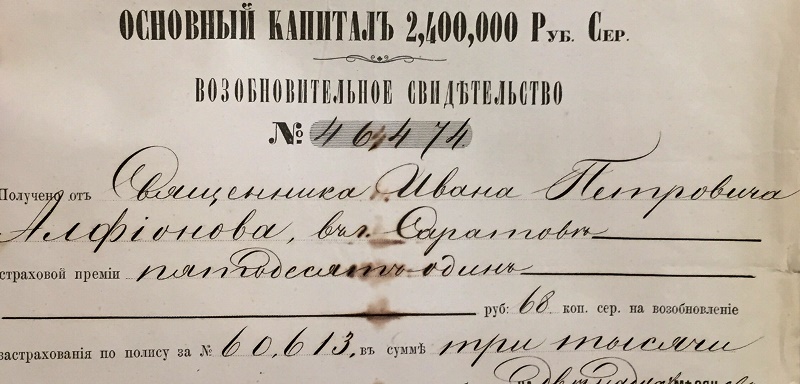 ОСНОВНЫЙ КАПИТАЛЪ 2,400,000 РУБ. СЕР.
ВОЗОБНОВИТЕЛЬНОЕ СВИДѢТЕЛЬСТВО
№ 46474
Получено отъ Священника Ивана Петровича
Алфіонова, въ г. Саратовѣ
страховой преміи пятьдесятъ одинъ
руб: 68 коп. сер. на возобновленіе
застрахованія по полису за № 60,613, въ суммѣ три тысячи